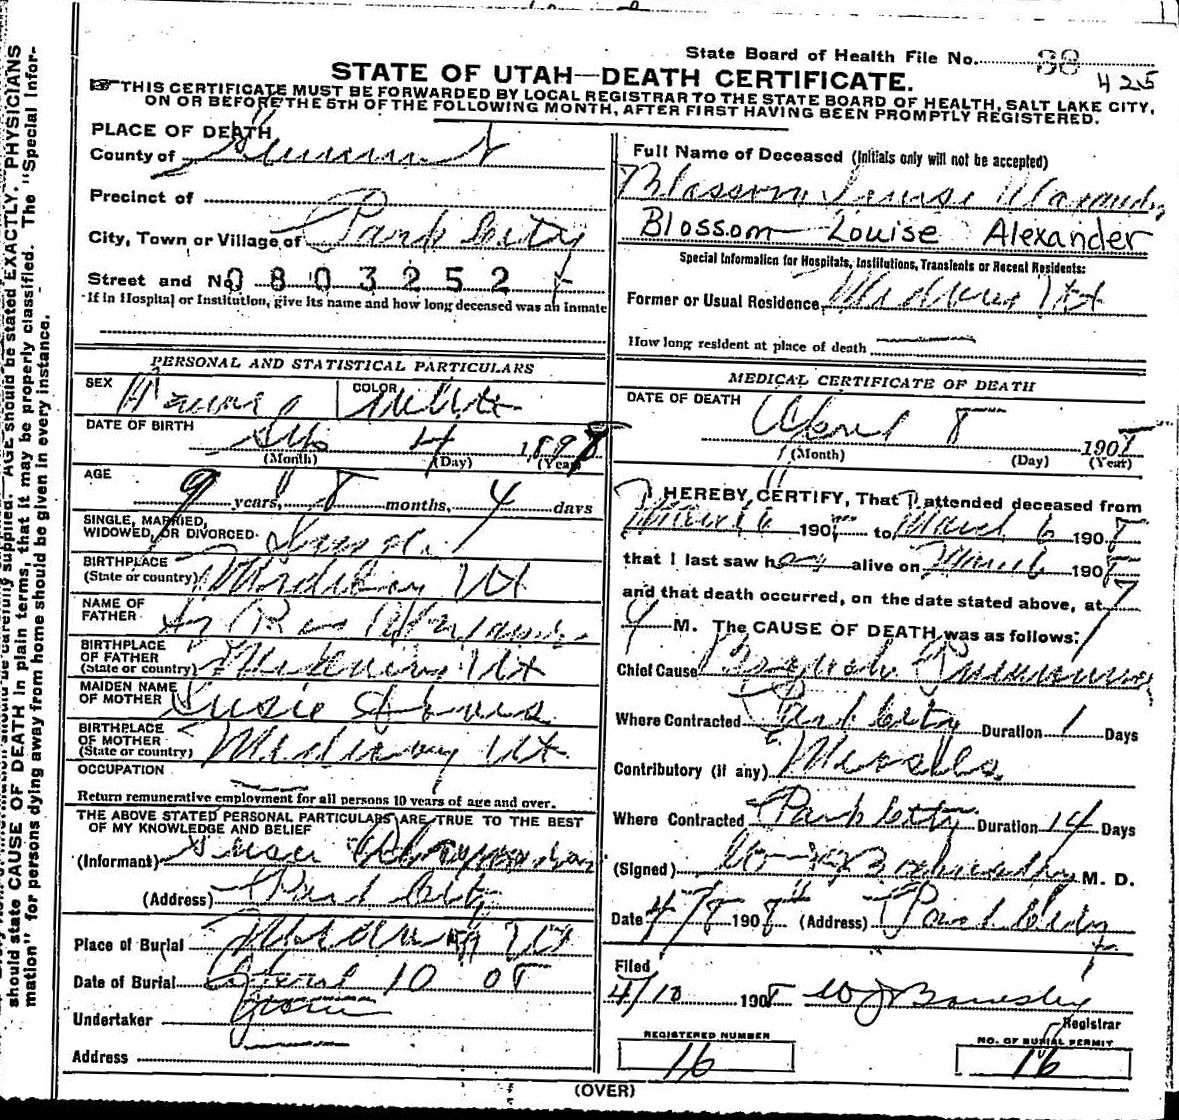 State Board of Health File No. 38
425
STATE OF UTAH—DEATH CERTIFICATE.
THIS CERTIFICATE MUST BE FORWARDED BY LOCAL REGISTRAR TO THE STATE BOARD OF HEALTH, SALT LAKE CITY,
ON OR BEFORE THE 5TH OF THE FOLLOWING MONTH, AFTER FIRST HAVING BEEN PROMPTLY REGISTERED.
should state CAUSE OF DEATH in plain terms, that it may be properly classified. AGE should be stated EXACTLY. PHYSICIANS
mation" for persons dying away from home should be given in every instance. The "Special Infor-
PLACE OF DEATH
County of Summit
Precinct of
City, Town or Village of Park City
Street and No. 0803252
If in Hospital or Institution, give its name and how long deceased was an inmate
PERSONAL AND STATISTICAL PARTICULARS
SEX Female COLOR White
DATE OF BIRTH
4 1898
(Month) (Day) (Year)
AGE
9 years, 8 months, 4 days
SINGLE, MARRIED,
WIDOWED, OR DIVORCED
BIRTHPLACE
(State or country) Midway Ut
NAME OF
FATHER
BIRTHPLACE
OF FATHER
(State or country) Midway Ut
MAIDEN NAME
OF MOTHER Susie
BIRTHPLACE
OF MOTHER
(State or country) Midway Ut
OCCUPATION
Return remunerative employment for all persons 10 years of age and over.
THE ABOVE STATED PERSONAL PARTICULARS ARE TRUE TO THE BEST
OF MY KNOWLEDGE AND BELIEF
(Informant)
(Address) Park City
Place of Burial Midway Ut
Date of Burial April 10 08
Undertaker
Address
Full Name of Deceased (Initials only will not be accepted)
Blossom Louise Alexander
Blossom Louise Alexander
Special Information for Hospitals, Institutions, Transients or Recent Residents:
Former or Usual Residence Midway Ut
How long resident at place of death
MEDICAL CERTIFICATE OF DEATH
DATE OF DEATH
April 8 1908
(Month) (Day) (Year)
I HEREBY CERTIFY, That I attended deceased from
March 6 190 to March 6 1908
that I last saw her alive on March 6 1908
and that death occurred, on the date stated above, at 7
M. The CAUSE OF DEATH was as follows:
Chief Cause Pneumonia
Where Contracted Park City Duration 1 Days
Contributory (if any) Measles
Where Contracted Park City Duration 14 Days
(Signed) M. D.
Date 4/8 1908 (Address) Park City
Filed
4/10 1908 W J Bardsley
Registrar
REGISTERED NUMBER
16
NO. OF BURIAL PERMIT
16
(OVER)